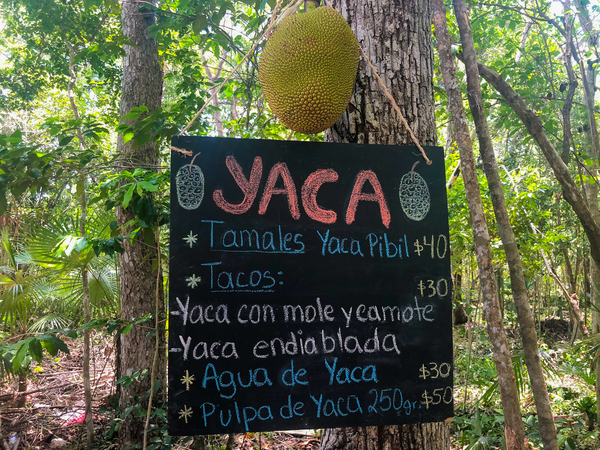 YACA
* Tamales Yaca Pibil $40
* Tacos: $30
-Yaca con mole y camote
-Yaca endiablada
* Agua de Yaca $30
* Pulpa de Yaca 250gr. $50